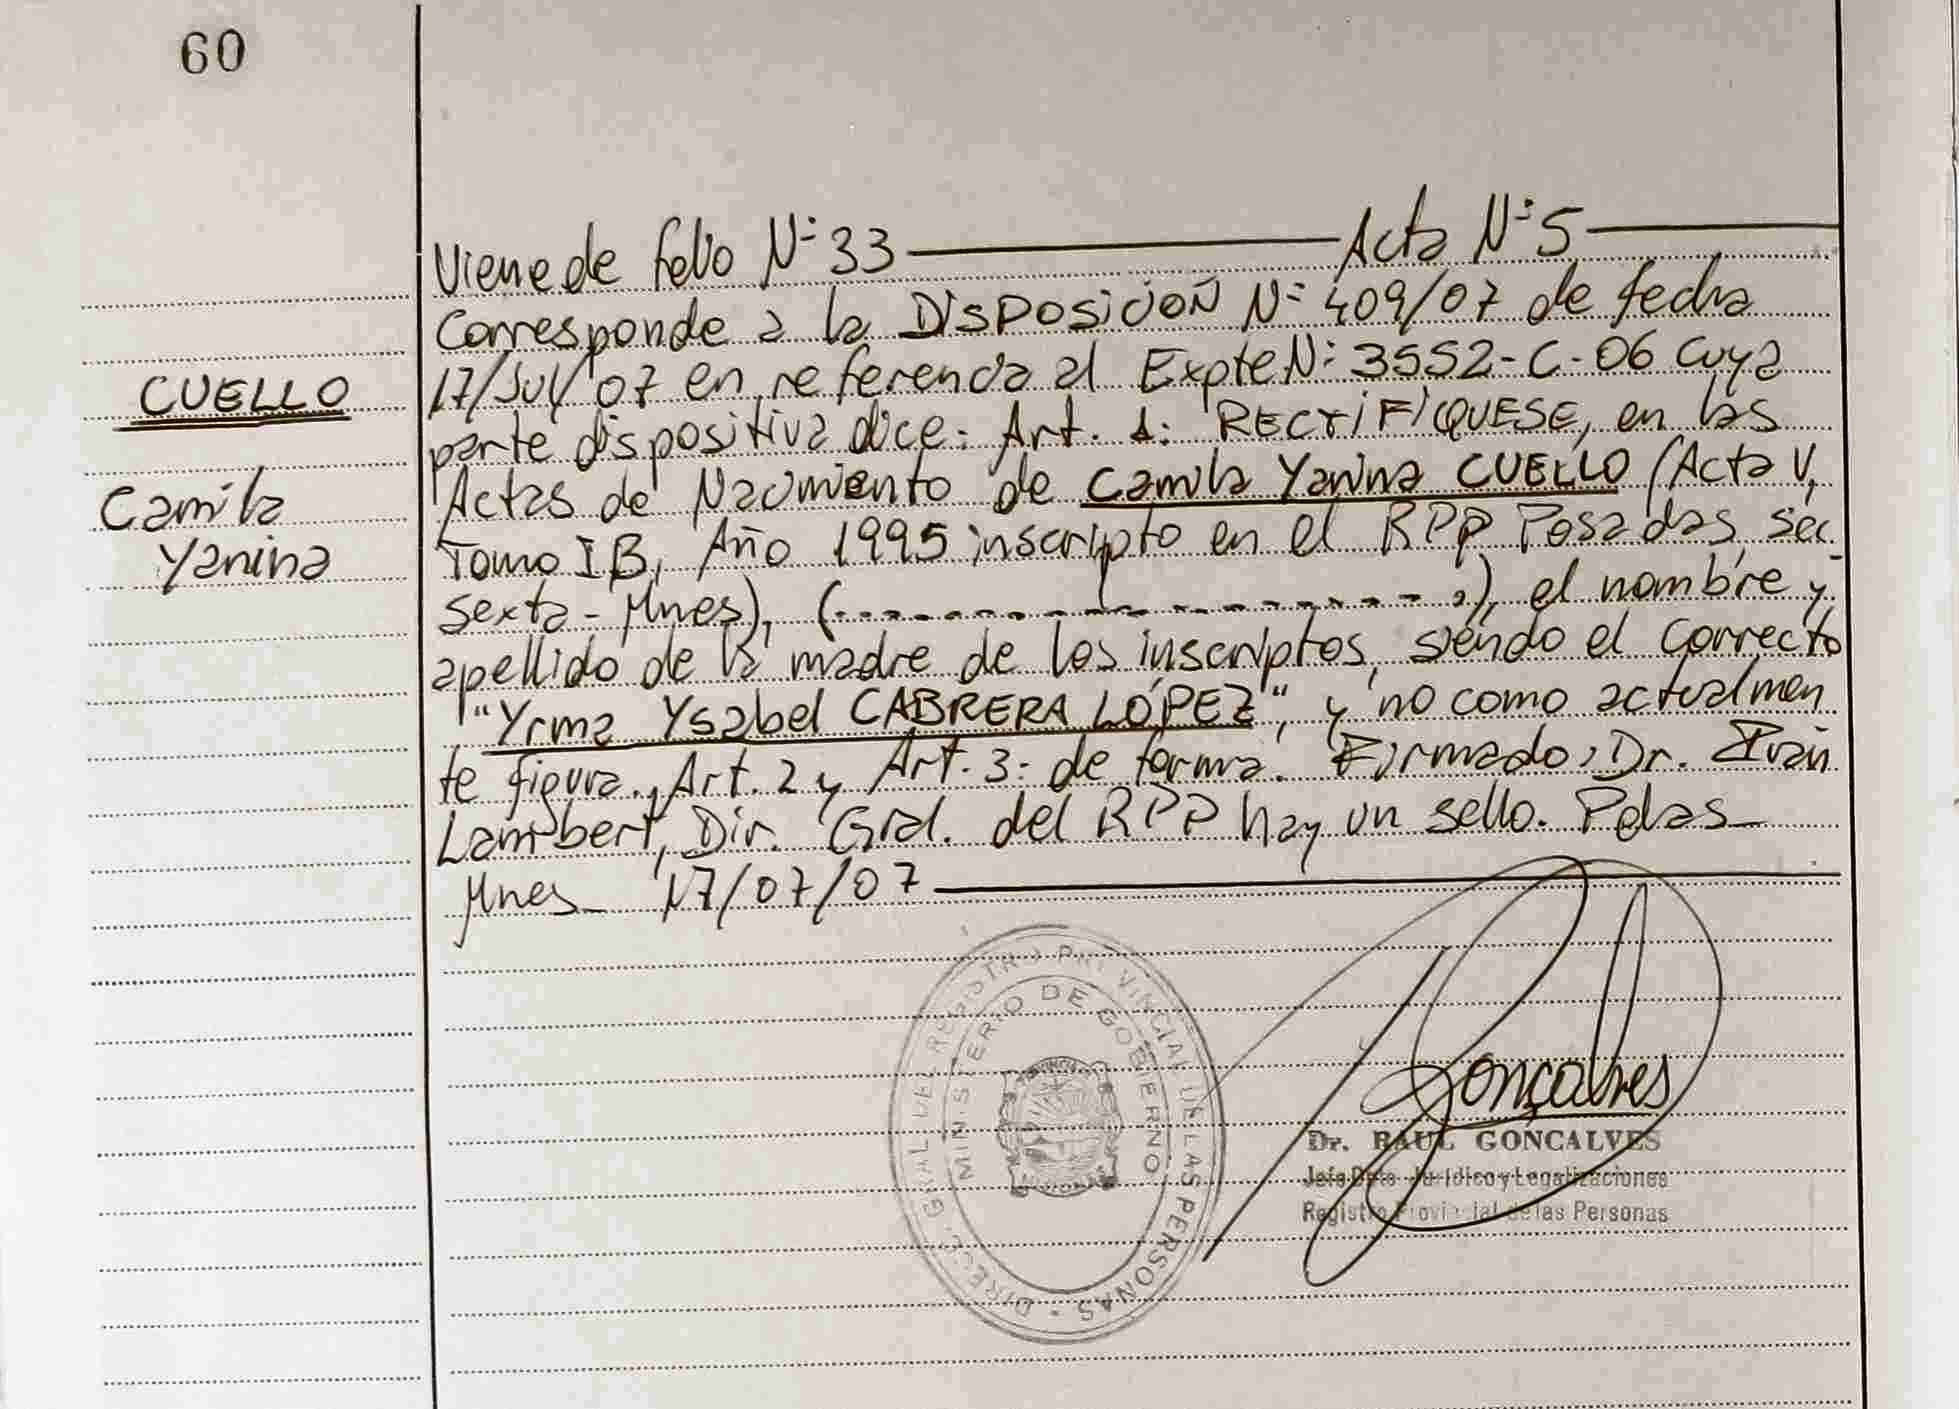 60
Viene de folio Nº 33 — Acta Nº 5 —
Corresponde a la DISPOSICIÓN Nº 409/07 de fecha
17/Jul/07 en referencia al Expte Nº 3552-C-06 cuya
parte dispositiva dice: Art. 1: RECTIFÍQUESE, en las
Actas de Nacimiento de Camila Yanina CUELLO (Acta V,
Tomo I B, Año 1995 inscripto en el RPP Posadas, sec.
sexta - Mnes), (- - - - - - - - - - - - - - - -), el nombre y
apellido de la madre de los inscriptos, siendo el correcto
"Yrma Ysabel CABRERA LÓPEZ", y no como actualmen
te figura., Art. 2 y Art. 3: de forma. Firmado, Dr. Iván
Lambert, Dir. Gral. del RPP hay un sello. Pdas_
Mnes_ 17/07/07 —
CUELLO
Camila
Yanina
DIRECC. GRAL. DEL REGISTRO PROVINCIAL DE LAS PERSONAS -
MINISTERIO DE GOBIERNO
PROVINCIA
MISIONES
Gonçalves
Dr. RAUL GONCALVES
Jefe Dpto. Jurídico y Legalizaciones
Registro Provincial de las Personas